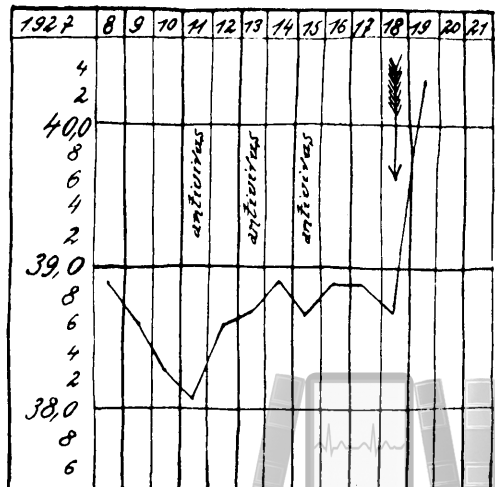 1927 8 9 10 11 12 13 14 15 16 17 18 19 20 21
4
2
40,0
8
6
4
2
39,0
8
6
4
2
38,0
8
6
antivirus
antivirus
antivirus